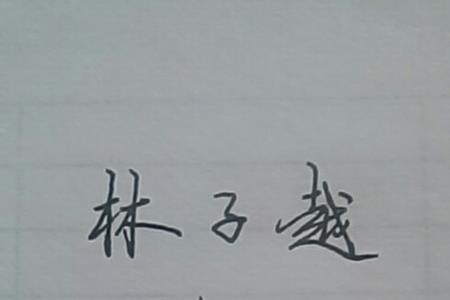 林子越